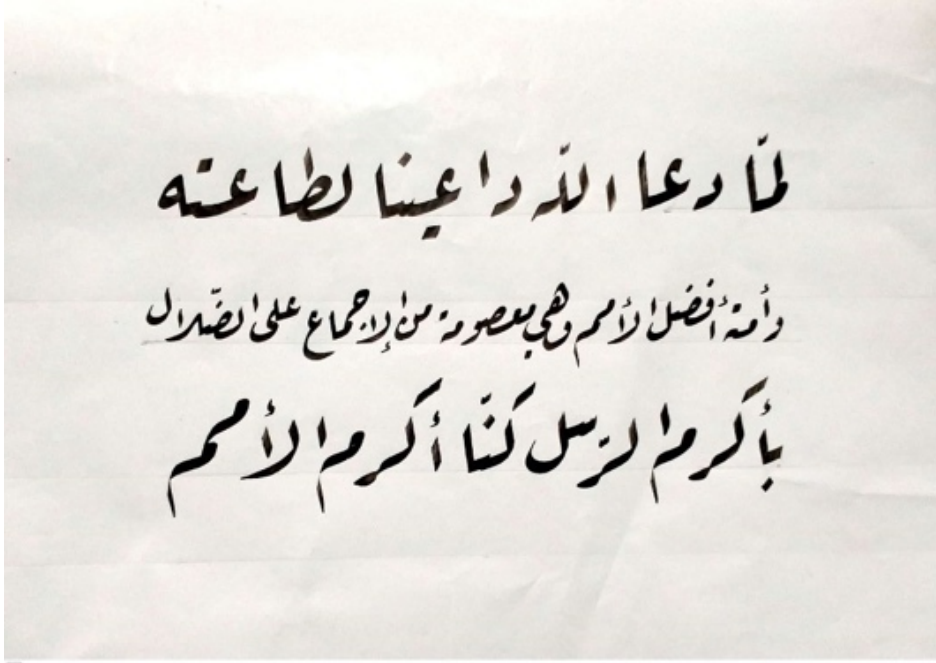 لمّا دعا اللّه داعينا لطاعته
وأمته أفضل الأمم وهي معصومة من الإجماع على الضّلال
بأكرم الرسل كنّا أكرم الأمم